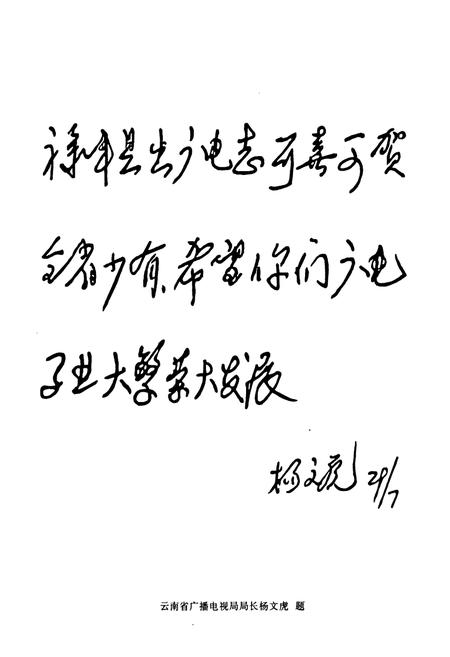 禄丰县出广电志可喜可贺
全省少有,希望你们广电
事业大繁荣大发展
杨文虎 21/7
云南省广播电视局局长杨文虎 题